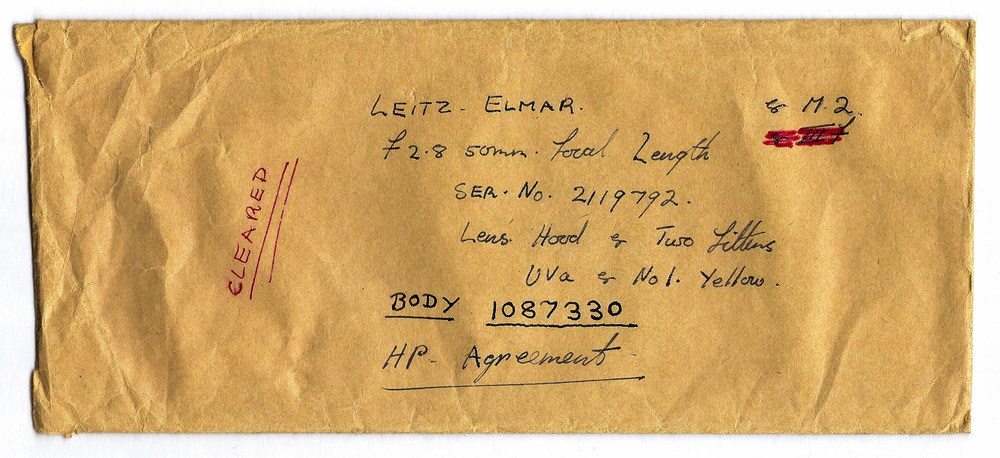 LEITZ - ELMAR.
& M.2.
& III f
f 2.8 50mm. Focal Length
SER. No. 2119792.
Lens. Hood & Two Filters
UVa & No 1. Yellow.
BODY 1087330
HP - Agreement -
CLEARED